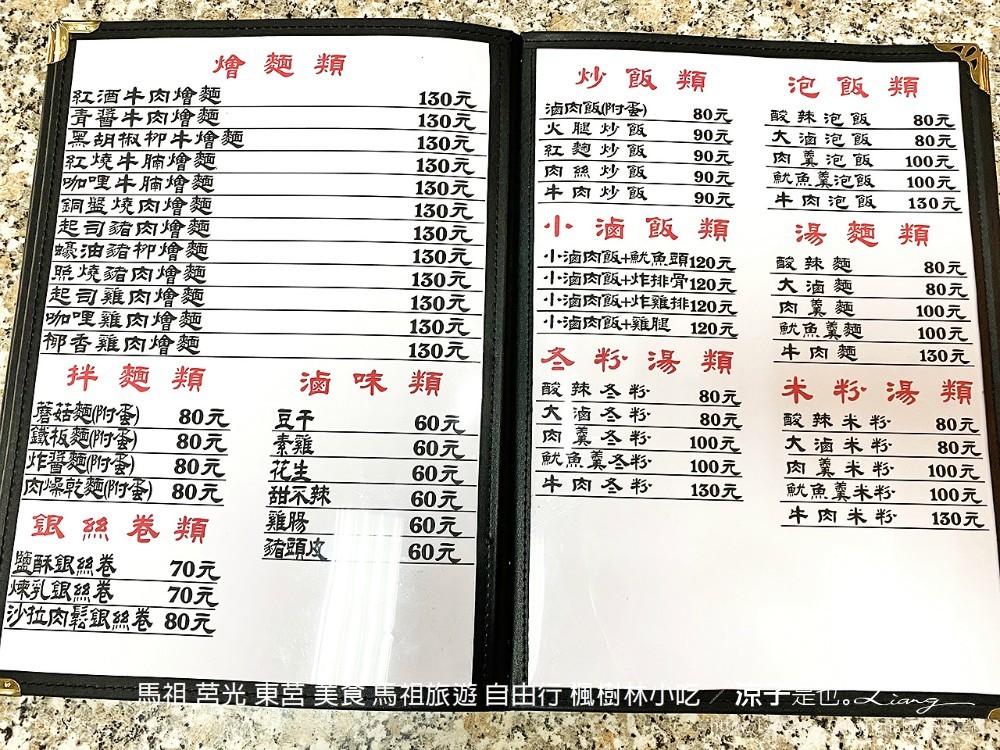 燴麵類
紅酒牛肉燴麵 130元
青醬牛肉燴麵 130元
黑胡椒柳牛燴麵 130元
紅燒牛腩燴麵 130元
咖哩牛腩燴麵 130元
銅盤燒肉燴麵 130元
起司豬肉燴麵 130元
蠔油豬柳燴麵 130元
照燒豬肉燴麵 130元
起司雞肉燴麵 130元
咖哩雞肉燴麵 130元
椰香雞肉燴麵 130元
拌麵類
蘑菇麵(附蛋) 80元
鐵板麵(附蛋) 80元
炸醬麵(附蛋) 80元
肉燥乾麵(附蛋) 80元
銀絲卷類
鹽酥銀絲卷 70元
煉乳銀絲卷 70元
沙拉肉鬆銀絲卷 80元
滷味類
豆干 60元
素雞 60元
花生 60元
甜不辣 60元
雞腸 60元
豬頭皮 60元
炒飯類
滷肉飯(附蛋) 80元
火腿炒飯 90元
紅麴炒飯 90元
肉絲炒飯 90元
牛肉炒飯 90元
小滷飯類
小滷肉飯+魷魚頭120元
小滷肉飯+炸排骨120元
小滷肉飯+炸雞排120元
小滷肉飯+雞腿 120元
冬粉湯類
酸辣冬粉 80元
大滷冬粉 80元
肉羹冬粉 100元
魷魚羹冬粉 100元
牛肉冬粉 130元
泡飯類
酸辣泡飯 80元
大滷泡飯 80元
肉羹泡飯 100元
魷魚羹泡飯 100元
牛肉泡飯 130元
湯麵類
酸辣麵 80元
大滷麵 80元
肉羹麵 100元
魷魚羹麵 100元
牛肉麵 130元
米粉湯類
酸辣米粉 80元
大滷米粉 80元
肉羹米粉 100元
魷魚羹米粉 100元
牛肉米粉 130元
馬祖 莒光 東莒 美食 馬祖旅遊 自由行 楓樹林小吃 / 涼子是也。Liang